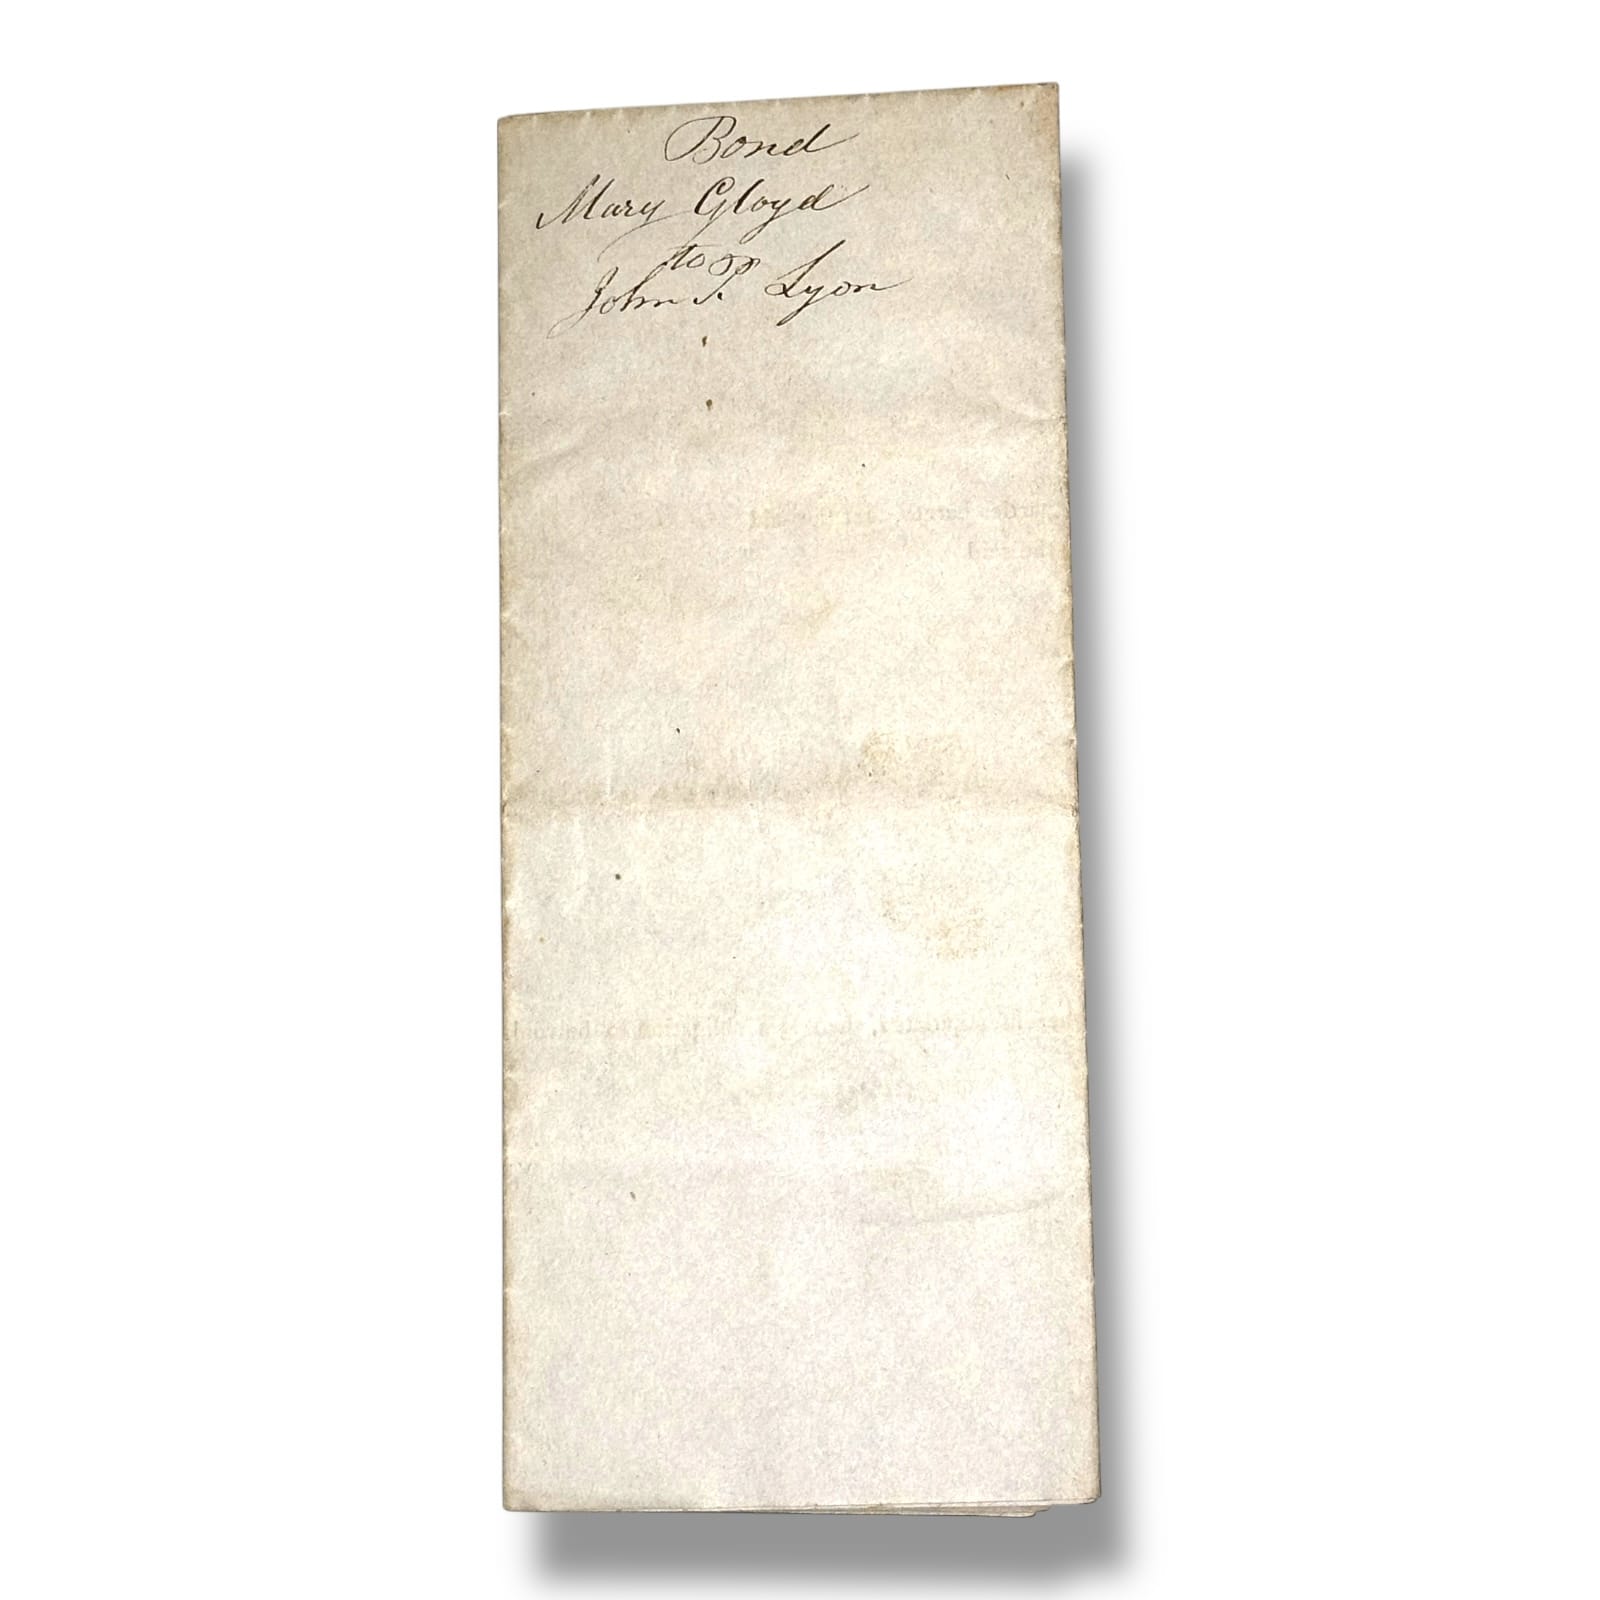 Bond
Mary Gloyd
to
John P. Lyon